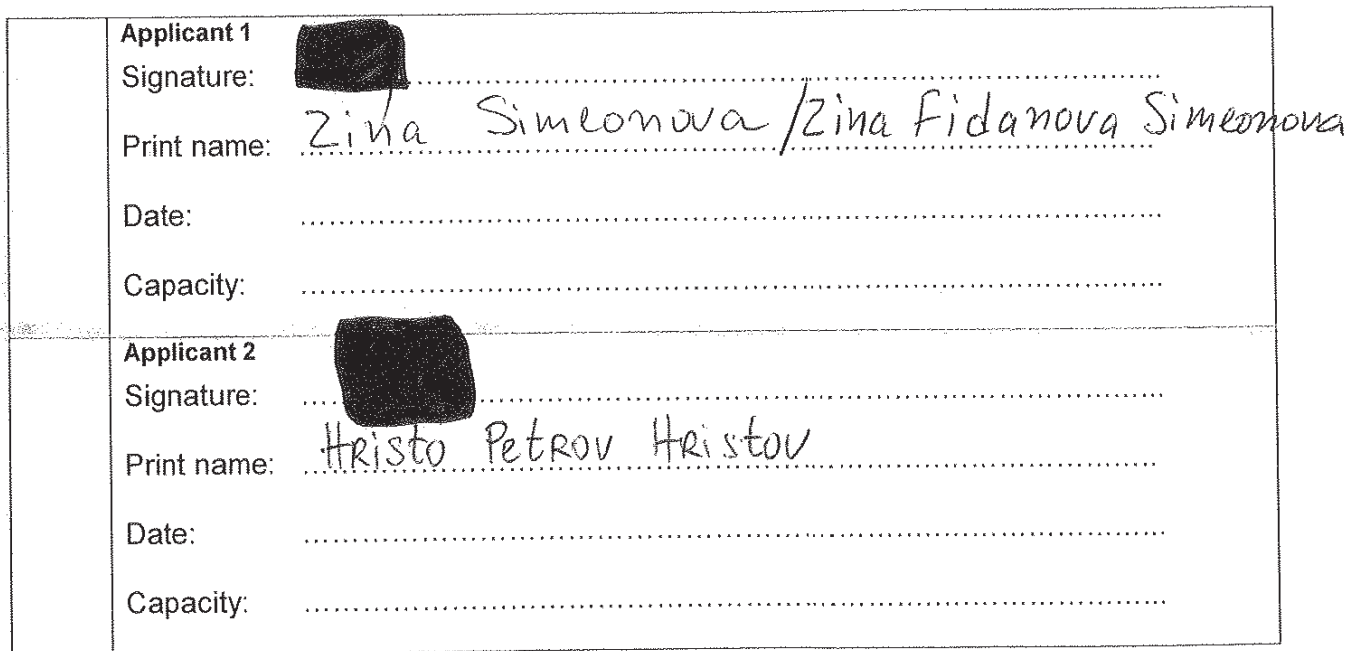 Applicant 1
Signature:
Print name: Zina Simeonova / Zina Fidanova Simeonova
Date:
Capacity:
Applicant 2
Signature:
Print name: HRisto PetRov HRistov
Date:
Capacity: